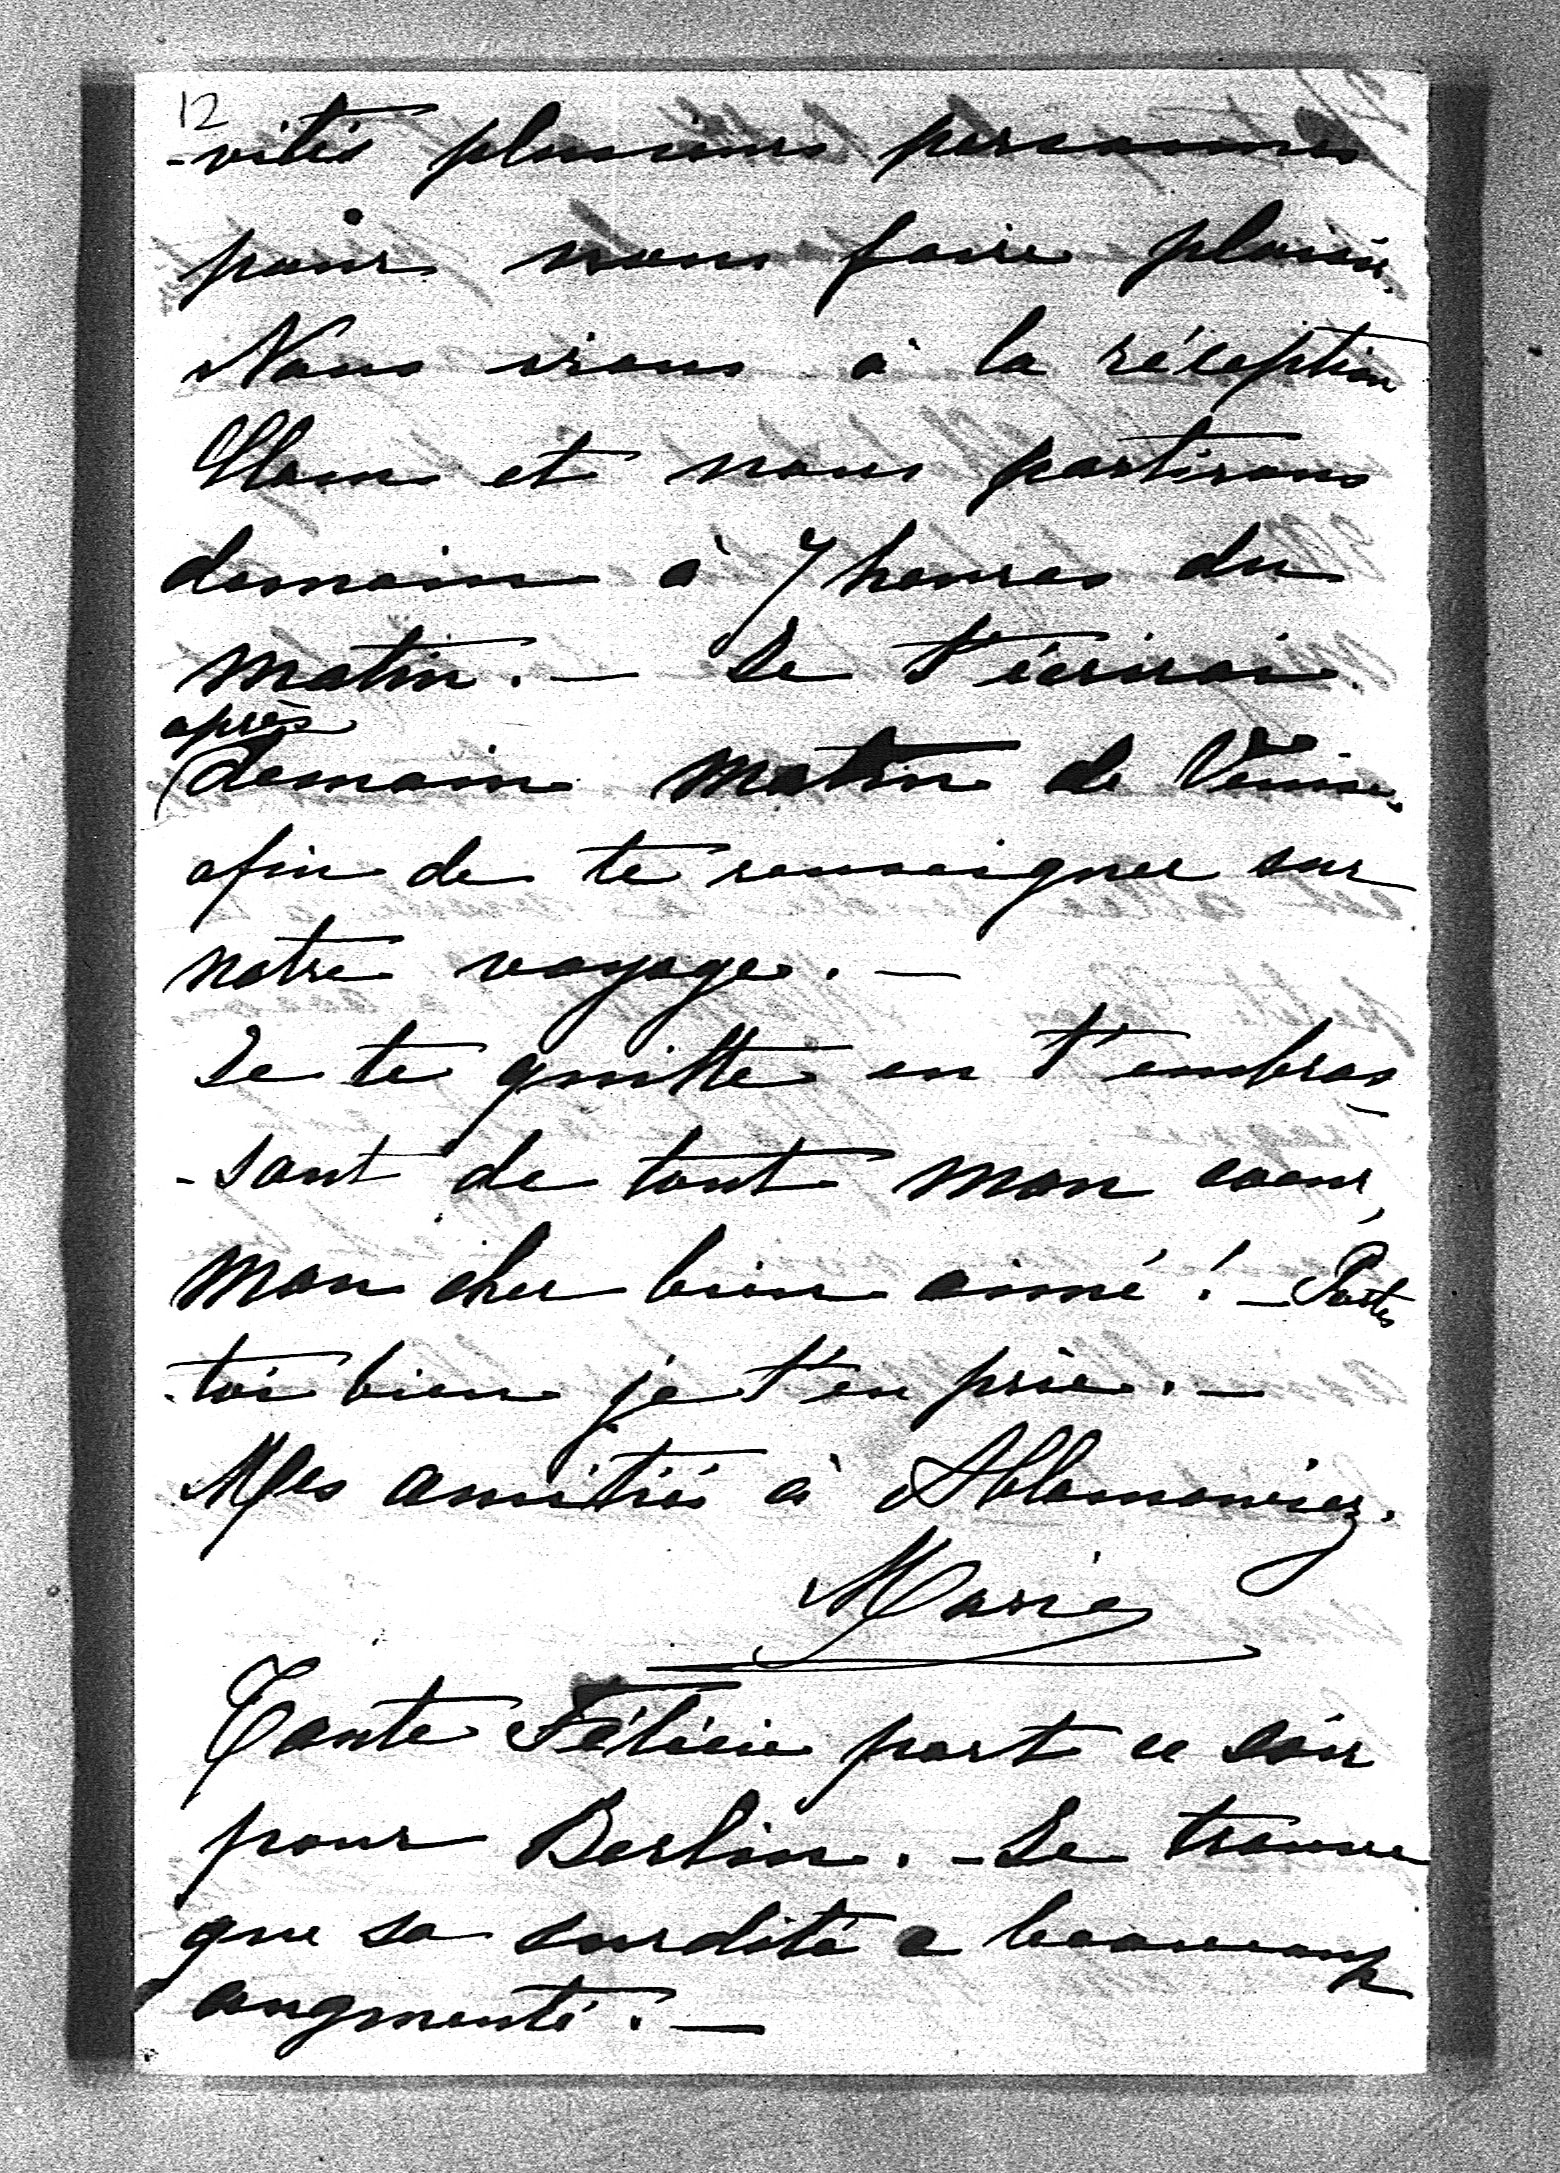 12
-vités plusieurs personnes
pour nous faire plaisir.
Nous irons à la réception
et nous partirons
demain à 7 heures du
matin. — Je t'écrirai
après
demain matin de Venise,
afin de te renseigner sur
notre voyage. —
Je te quitte en t'embras-
-sant de tout mon coeur,
mon cher bien aimé! — Portes
-toi bien je t'en prie. —
Mes amitiés à Ablamowicz.
Marie
Tante Félicie part ce soir
pour Berlin. - Je trouve
que sa surdité a beaucoup
augmenté. —